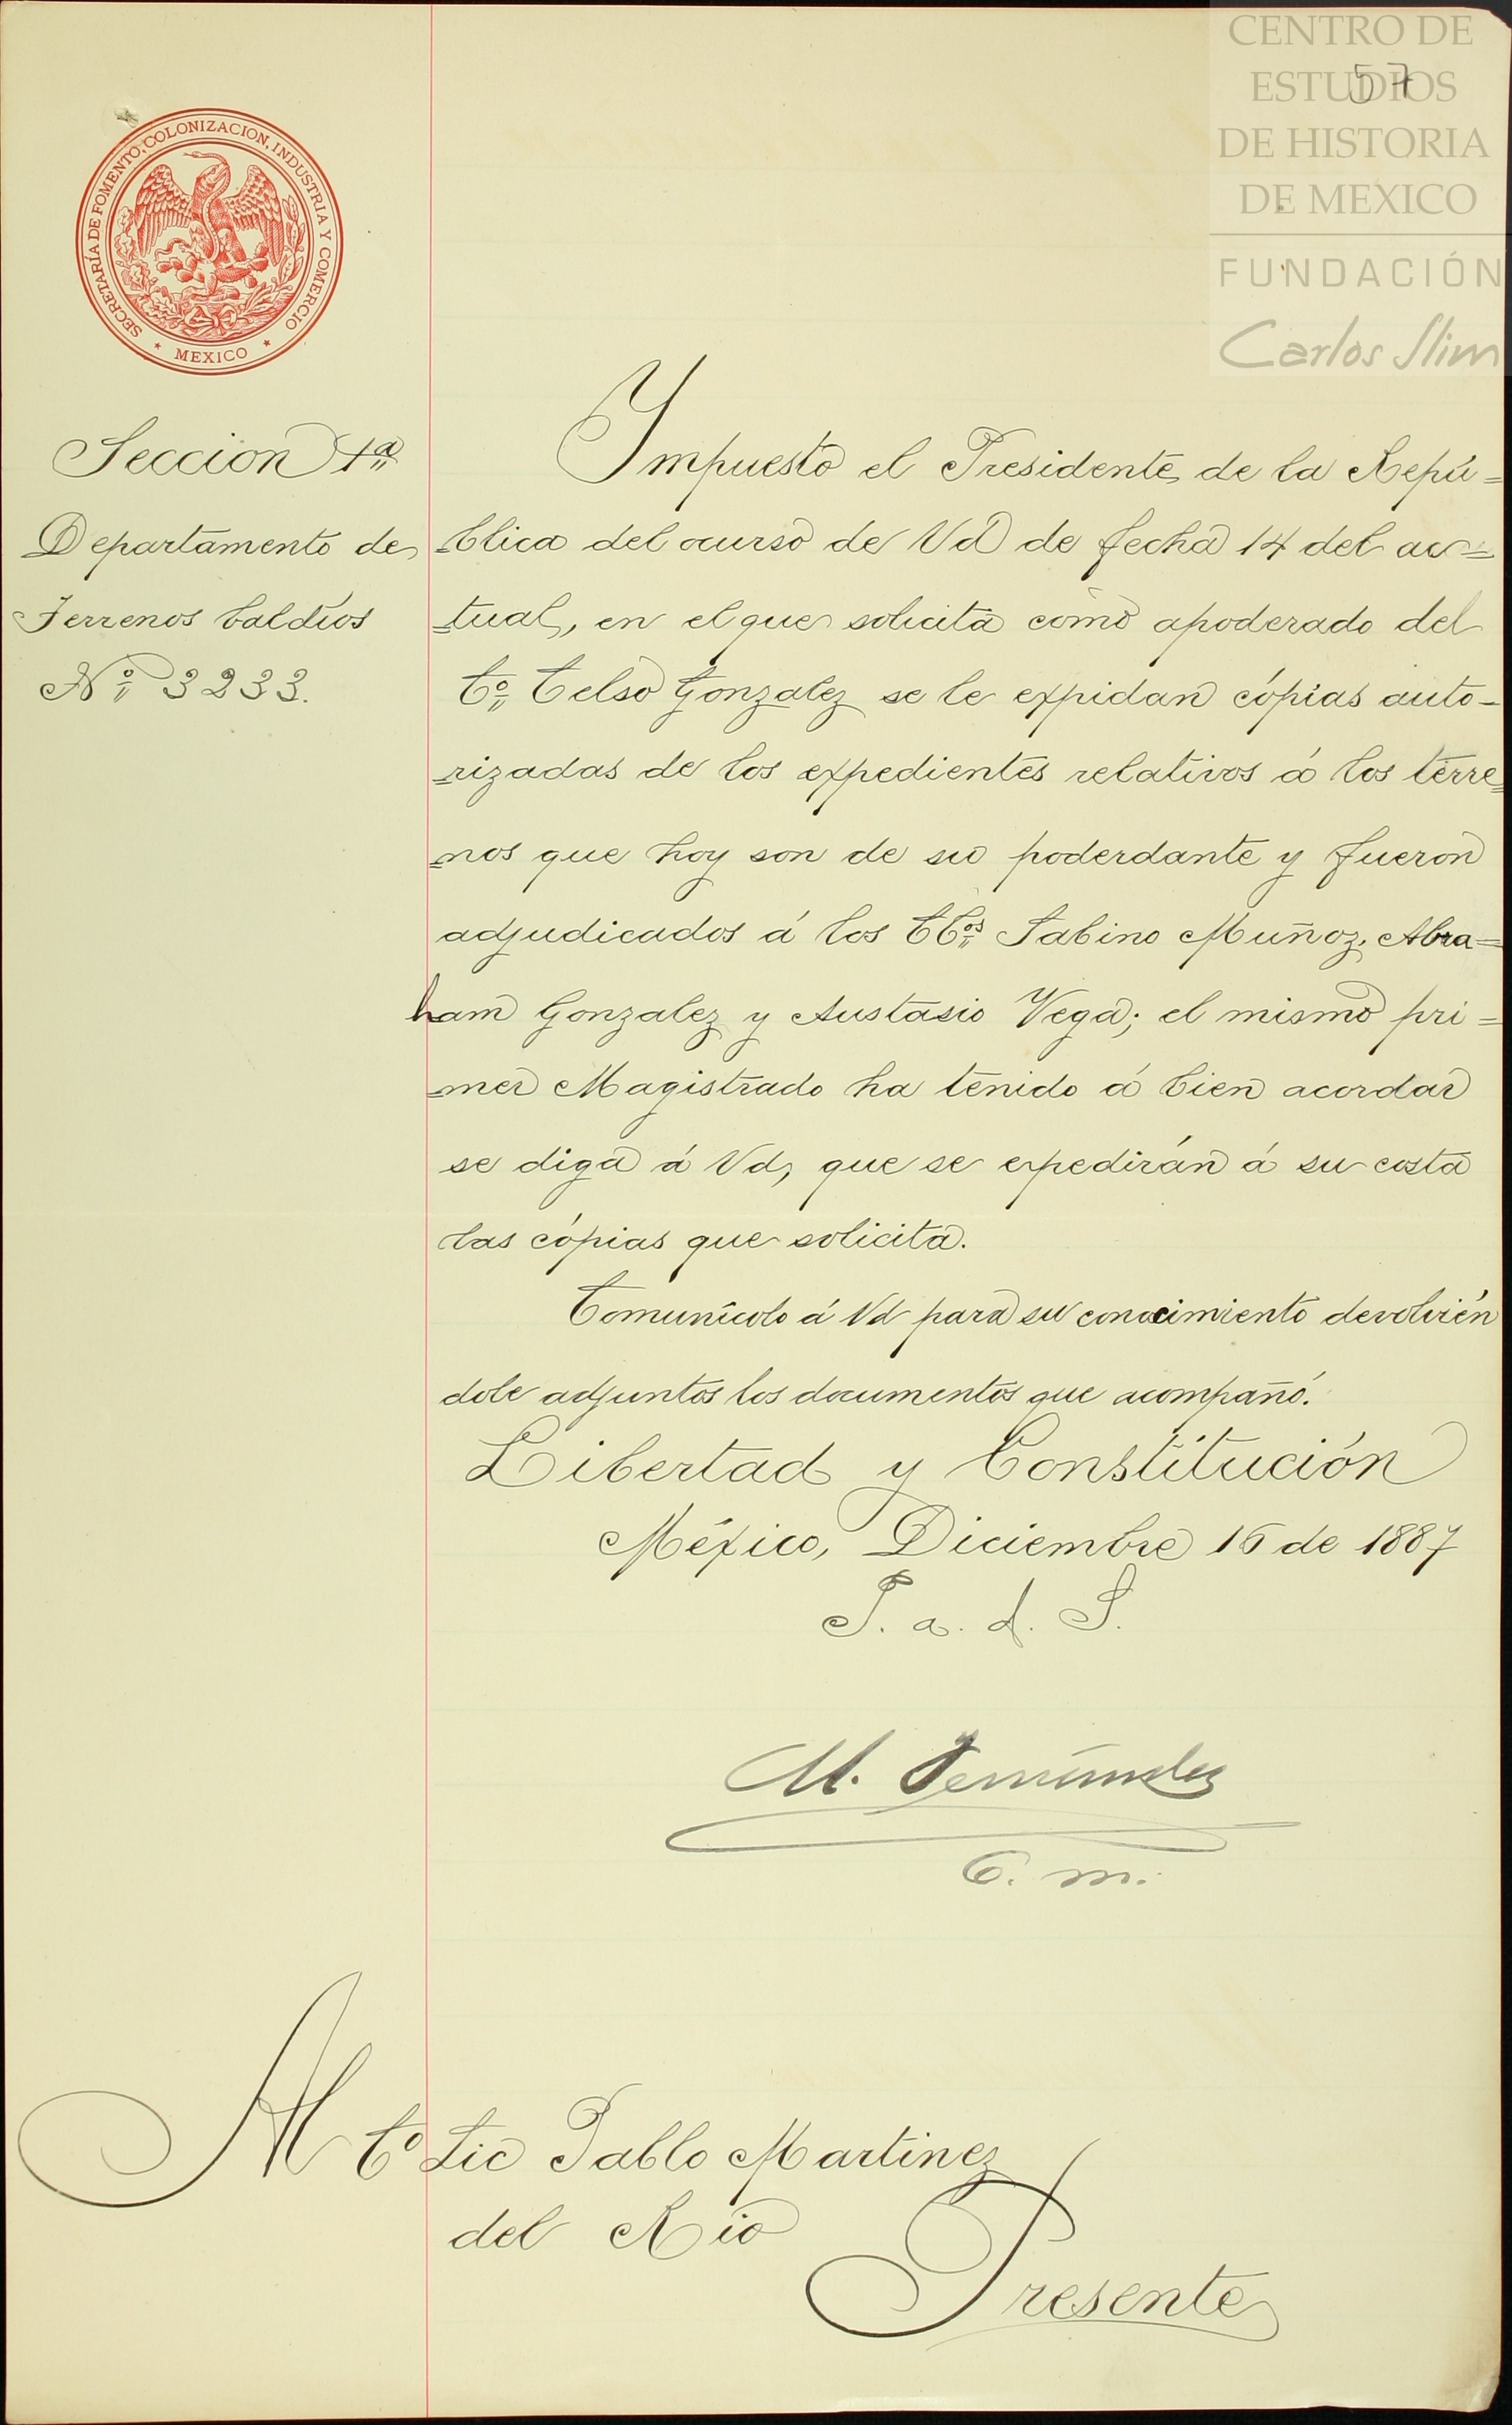 CENTRO DE
ESTUDIOS
DE HISTORIA
DE MEXICO
FUNDACIÓN
Carlos Slim
57
SECRETARÍA DE FOMENTO, COLONIZACION, INDUSTRIA Y COMERCIO
* MEXICO *
Seccion 1ª
Departamento de
Terrenos baldíos
Nº 3233.
Impuesto el Presidente de la Repú=
blica del ocurso de Vd de fecha 14 del ac=
tual, en el que solicita como apoderado del
Cº Celso Gonzalez se le expidan cópias auto-
rizadas de los expedientes relativos á los terre=
nos que hoy son de su poderdante y fueron
adjudicados á los CCos Sabino Muñoz, Abra=
ham Gonzalez y Austasio Vega; el mismo pri=
mer Magistrado ha tenido á bien acordar
se diga á Vd, que se expedirán á su costa
las cópias que solicita.
Comunícolo á Vd para su conocimiento devolvién
dole adjuntos los documentos que acompañó.
Libertad y Constitución
México, Diciembre 16 de 1887
P. a. d. S.
M. Fernández
O. m.
Al Cº Lic Pablo Martinez
del Rio
Presente